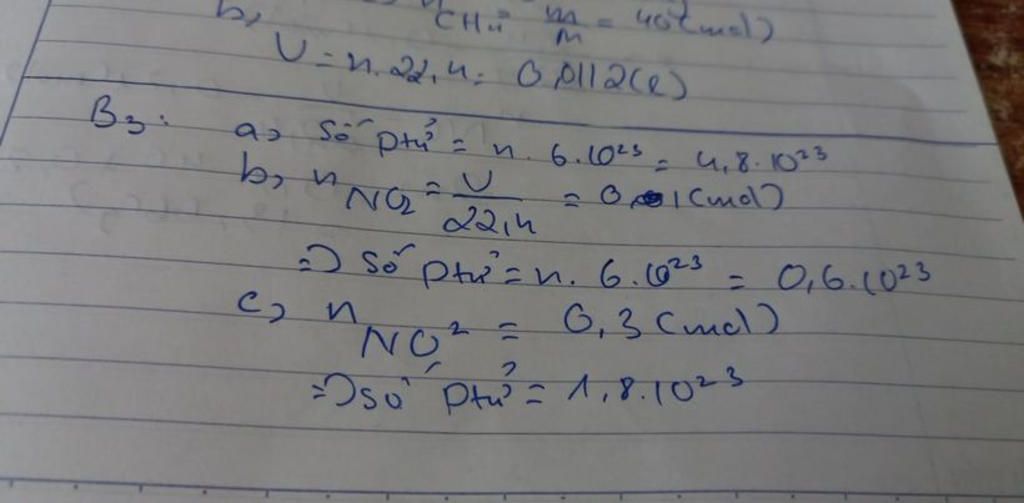 b, CH4 = m/M = (mol)
V = n.22,4 = 0,0112(l)
B3: a, Số ptử = n . 6.10²³ = 4,8.10²³
b, nNO2 = V/22,4 = 0,1(mol)
=> Số ptử = n. 6.10²³ = 0,6.10²³
c, nNO² = 0,3 (mol)
=> số ptử = 1,8.10²³